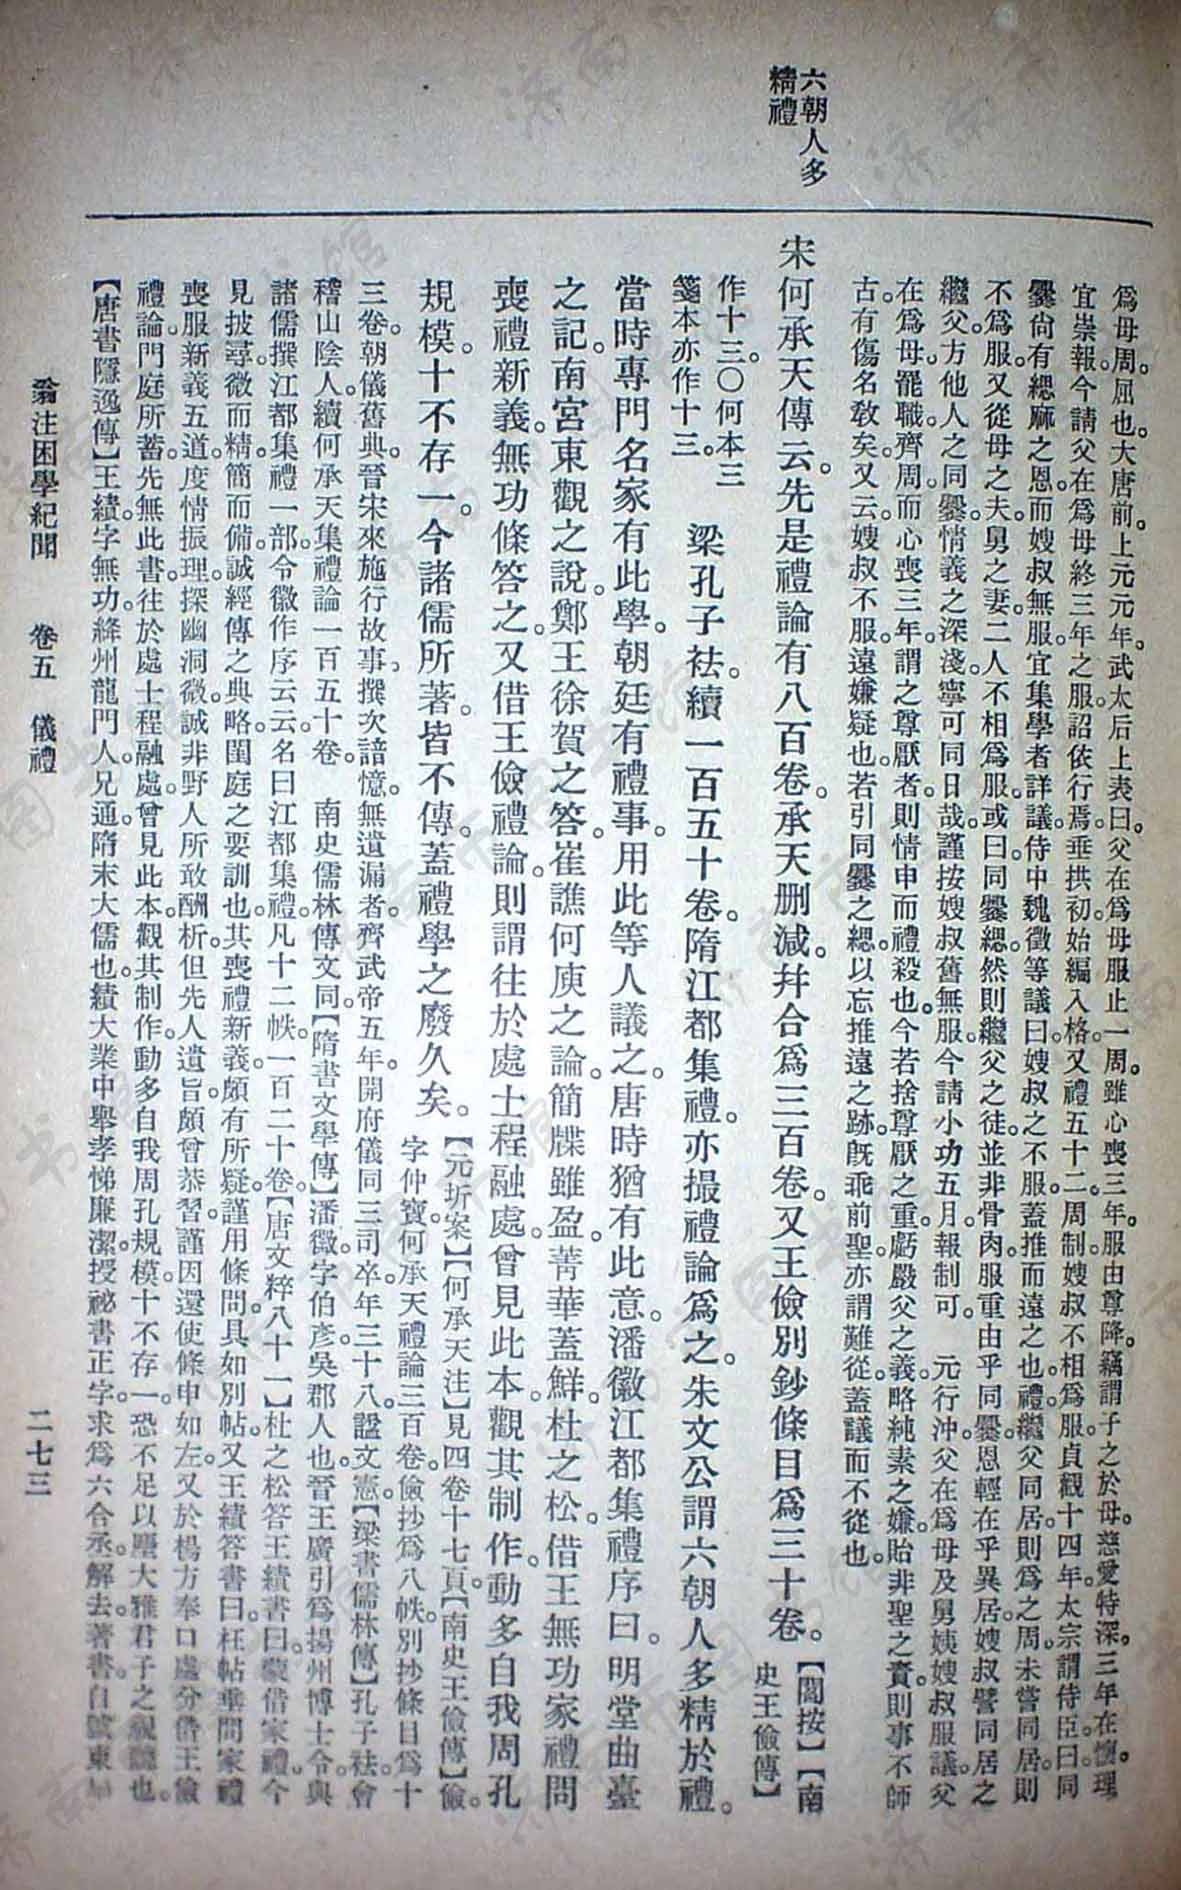 六朝人多
精禮
爲母周。屈也。大唐前。上元元年。武太后上表曰。父在爲母服止一周。雖心喪三年。服由尊降。竊謂子之於母。慈愛特深。三年在懷。理
宜崇報。今請父在爲母終三年之服。詔依行焉。垂拱初。始編入格。又禮五十二。周制。嫂叔不相爲服。貞觀十四年。太宗謂侍臣曰。同
爨尙有緦麻之恩。而嫂叔無服。宜集學者詳議。侍中魏徵等議曰。嫂叔之不服。蓋推而遠之也。禮。繼父同居。則爲之周。未嘗同居。則
不爲服。又從母之夫。舅之妻。二人不相爲服。或曰同爨緦。然則繼父之徒。並非骨肉。服重由乎同爨。恩輕在乎異居。嫂叔譬同居之
繼父。方他人之同爨。情義之深淺。寧可同日哉。謹按嫂叔舊無服。今請小功五月。報制可。　元行沖。父在爲母及舅姨嫂叔服議。父
在爲母。罷職。齊周而心喪三年。謂之尊厭者。則情申而禮殺也。今若捨尊厭之重。虧嚴父之義。略純素之嫌。貽非聖之責。則事不師
古。有傷名敎矣。又云。嫂叔不服。遠嫌疑也。若引同爨之緦。以忘推遠之跡。旣乖前聖。亦謂難從。蓋議而不從也。
宋何承天傳云。先是禮論有八百卷。承天删減。幷合爲三百卷。又王儉別鈔條目爲三十卷。【閻按】【南
史王儉傳】
作十三。〇何本三
箋本亦作十三。
梁孔子袪。續一百五十卷。隋江都集禮。亦撮禮論爲之。朱文公謂六朝人多精於禮。
當時專門名家有此學。朝廷有禮事。用此等人議之。唐時猶有此意。潘徽江都集禮序曰。明堂曲臺
之記。南宮東觀之說。鄭王徐賀之答。崔譙何庾之論。簡牒雖盈。菁華蓋鮮。杜之松。借王無功家禮問
喪禮新義。無功條答之。又借王儉禮論。則謂往於處士程融處。曾見此本。觀其制作。動多自我周孔
規模。十不存一。今諸儒所著。皆不傳。蓋禮學之廢久矣。
【元圻案】【何承天注】見四卷十七頁。【南史王儉傳】儉。
字仲寶。何承天禮論三百卷。儉抄爲八帙。別抄條目爲十
三卷。朝儀舊典。晉宋來施行故事。撰次諳憶。無遺漏者。齊武帝五年。開府儀同三司。卒。年三十八。諡文憲。【梁書儒林傳】孔子袪。會
稽山陰人。續何承天集禮論一百五十卷。　南史儒林傳文同。【隋書文學傳】潘徽。字伯彥。吳郡人也。晉王廣引爲揚州博士。令與
諸儒撰江都集禮一部。令徽作序云云。名曰江都集禮。凡十二帙。一百二十卷。【唐文粹八十一】杜之松答王績書曰。蒙借家禮。今
見披尋。微而精。簡而備。誠經傳之典略。閨庭之要訓也。其喪禮新義。頗有所疑。謹用條問。具如別帖。又王績答書曰。枉帖垂問家禮
喪服新義五道。度情振理。探幽洞微。誠非野人所敢酬析。但先人遺旨。頗曾恭習。謹因還使條申如左。又於楊方奉口處分借王儉
禮論。門庭所蓄。先無此書。往於處士程融處。曾見此本。觀其制作。動多自我周孔規模。十不存一。恐不足以塵大雅君子之視聽也。
【唐書隱逸傳】王績。字無功。絳州龍門人。兄通。隋末大儒也。績大業中舉孝悌廉潔。授祕書正字。求爲六合丞。解去。著書。自號東皐
翁注困學紀聞　卷五　儀禮　二七三